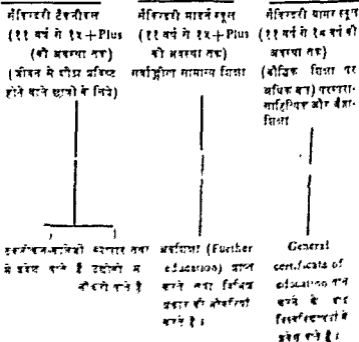 सेकेन्डरी टैकनीकल
(११ वर्ष से १५+Plus
की अवस्था तक)
(जीवन में शीघ्र प्रविष्ट
होने वाले छात्रों के लिये)
सेकेन्डरी माडर्न स्कूल
(११ वर्ष से १५+Plus
की अवस्था तक)
सर्वाङ्गीण सामान्य शिक्षा
सेकेन्डरी ग्रामर स्कूल
(११ वर्ष से १८ वर्ष की
अवस्था तक)
(बौद्धिक शिक्षा पर
अधिक बल) परम्परा-
साहित्यिक और
शिक्षा
व्यापार तथा
में प्रवेश पाते हैं उद्योगों में
नौकरी पाते हैं
अग्रशिक्षा (Further
education) प्राप्त
करते तथा विभिन्न
प्रकार की नौकरियाँ
करते हैं।
General
certificate of
education प्राप्त
करने के बाद
विश्वविद्यालयों में
प्रवेश पाते हैं।